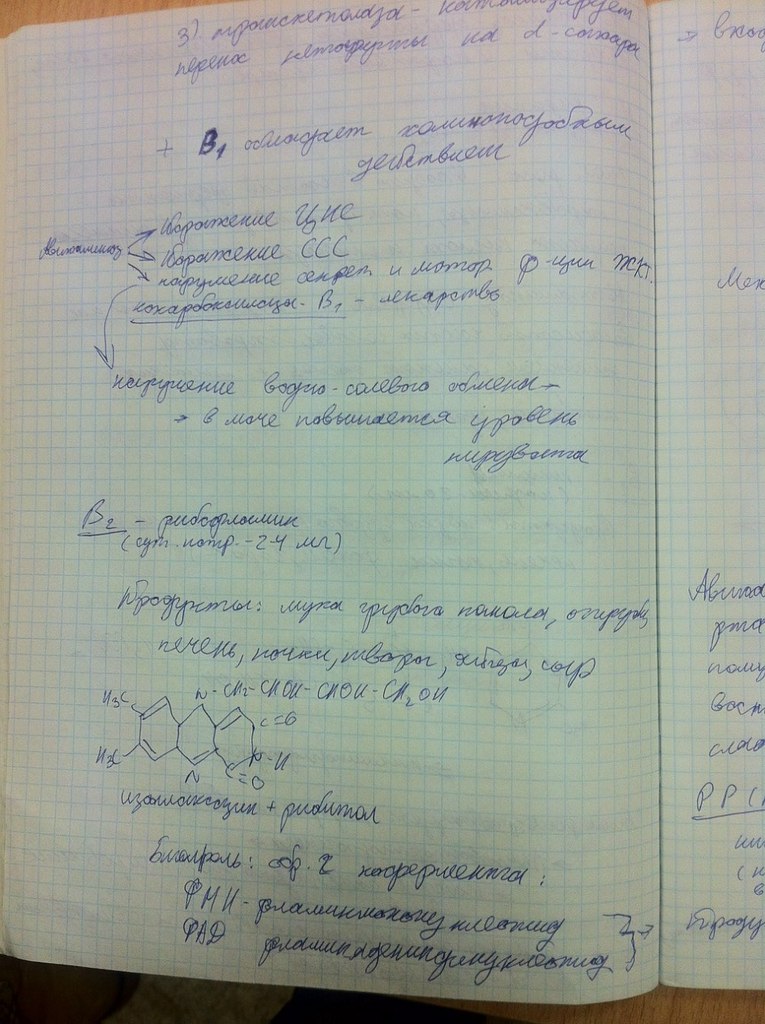 3) транскетолаза - катализирует
перенос на α-сахара
+ B₁ обладает холиноподобным
действием
Авитаминоз
→ Поражение ЦНС
→ Поражение ССС
→ нарушение секрет и мотор ф-ции ЖКТ.
кокарбоксилаза - B₁ - лекарство
нарушение водно-солевого обмена →
→ в моче повышается уровень
пирувата
B₂ - рибофламин
(сут. потр. - 2-4 мг)
Продукты: мука грубого помола,
печень, почки, творог, яйца, сыр
H₃C N - CH₂ - CHOH - CHOH - CH₂OH
C=O
N - H
H₃C N C=O
изоллоксацин + рибитол
Биолроль: обр. 2 кофермента:
ФМН - фламинмононуклеотид
ФАД фламинадениндинуклеотид
→ вход
Мех
Авита
рта
пому
восп
слаб
PP (
ни
(н
в
Проду